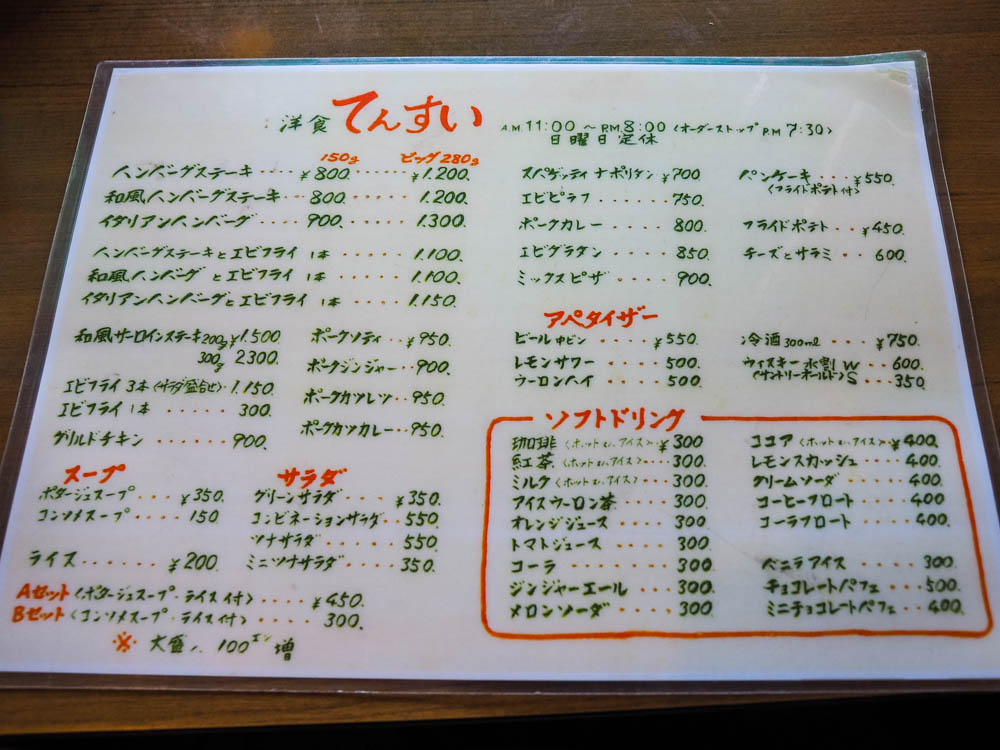 洋食 てんすい A.M.11:00～P.M.8:00〈オーダーストップP.M7:30〉
日曜日定休
150g ビッグ280g
ハンバーグステーキ････¥800. ････¥1.200.
和風ハンバーグステーキ･･･800. ････1.200.
イタリアンハンバーグ････900. ････1.300.
ハンバーグステーキとエビフライ 1本 ････1.100.
和風ハンバーグとエビフライ 1本 ････1.100.
イタリアンハンバーグとエビフライ 1本 ････1.150.
和風サーロインステーキ200g ¥1.500
300g 2300.
エビフライ3本〈サラダ盛合せ〉･1.150
エビフライ1本 ･･････300.
グリルドチキン ･･････900.
ポークソティ ･･¥950.
ポークジンジャー･･900.
ポークカツレツ･･950.
ポークカツカレー･･950.
スープ
ポタージュスープ･･･¥350.
コンソメスープ････150
ライス･････¥200.
サラダ
グリーンサラダ････¥350.
コンビネーションサラダ･･550.
ツナサラダ･････550.
ミニツナサラダ････350.
Aセット〈ポタージュスープ・ライス付〉････¥450.
Bセット〈コンソメスープ・ライス付〉････300.
※ 大盛ハ 100エン増
スパゲッティナポリタン･¥700
エビピラフ ･････750.
ポークカレー ･････800
エビグラタン ･････850.
ミックスピザ ･････900.
パンケーキ ･･･¥550.
〈フライドポテト付〉
フライドポテト･･¥450.
チーズとサラミ･･600.
アペタイザー
ビール中ビン ････¥550.
レモンサワー ････500.
ウーロンハイ ････500
冷酒300ml･････¥750.
ウィスキー水割W･･600.
〈サントリーオールド〉S･･350.
ソフトドリング
珈琲〈ホットor.アイス〉･¥300
紅茶〈ホットor.アイス〉･･300.
ミルク〈ホットor.アイス〉･･300.
アイスウーロン茶････300
オレンジジュース････300
トマトジュース････300
コーラ ･･････300
ジンジャーエール････300
メロンソーダ････300
ココア〈ホットor.アイス〉･¥400.
レモンスカッシュ････400.
クリームソーダ････400.
コーヒーフロート････400
コーラフロート････400.
バニラアイス････300.
チョコレートパフェ･･･500.
ミニチョコレートパフェ･･400.